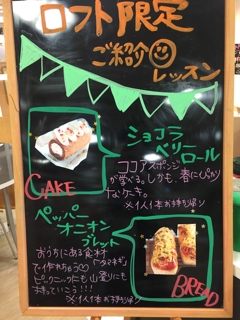 ロフト限定
ご紹介
レッスン
ショコラ
ベリー
ロール
ココアスポンジ
が学べる。しかも、春にぴったり
なケーキ。
※1人1本お持ち帰り
CAKE
ペッパー
オニオン
ブレッド
おうちにある食材
で作れちゃう♡
ピクニックにも
持っていこう!!!
※1人1本お持ち帰り
BREAD